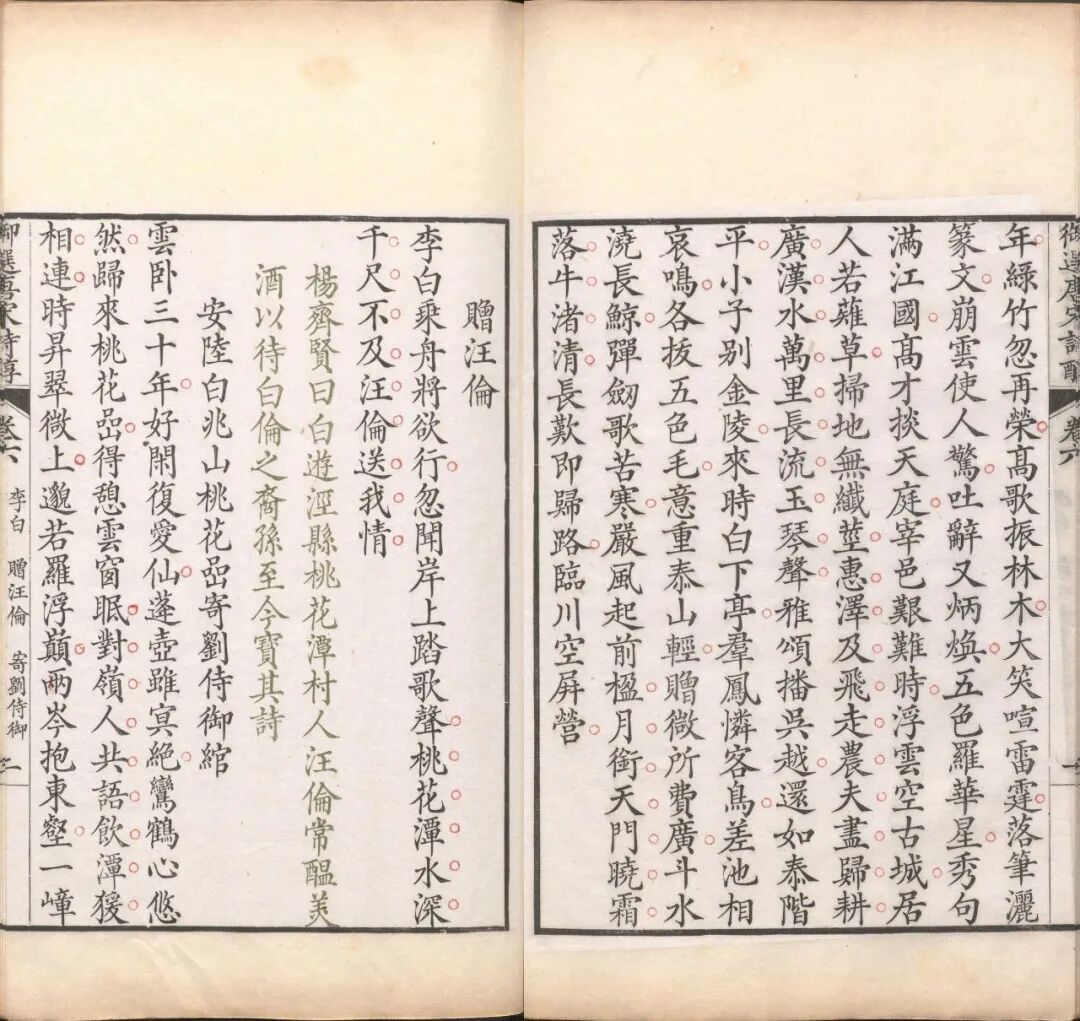 年綠竹忽再榮高歌振林木大笑喧雷霆落筆灑
篆文崩雲使人驚吐辭又炳煥五色羅華星秀句
滿江國高才掞天庭宰邑艱難時浮雲空古城居
人若薙草掃地無纖莖惠澤及飛走農夫盡歸耕
廣漢水萬里長流玉琴聲雅頌播吳越還如泰階
平小子别金陵來時白下亭羣鳳憐客鳥差池相
哀鳴各拔五色毛意重泰山輕贈微所費廣斗水
澆長鯨彈劒歌苦寒嚴風起前楹月銜天門曉霜
落牛渚清長歎即歸路臨川空屏營
贈汪倫
李白乘舟將欲行忽聞岸上踏歌聲桃花潭水深
千尺不及汪倫送我情
楊齊賢曰白遊涇縣桃花潭村人汪倫常醞美
酒以待白倫之裔孫至今寶其詩
安陸白兆山桃花嵒寄劉侍御綰
雲卧三十年好閑復愛仙蓬壺雖冥絶鸞鶴心悠
然歸來桃花嵒得憩雲窗眠對嶺人共語飲潭猨
相連時昇翠微上邈若羅浮巔兩岑抱東壑一嶂
御選唐宋詩醇 卷六 李白 贈汪倫 寄劉侍御